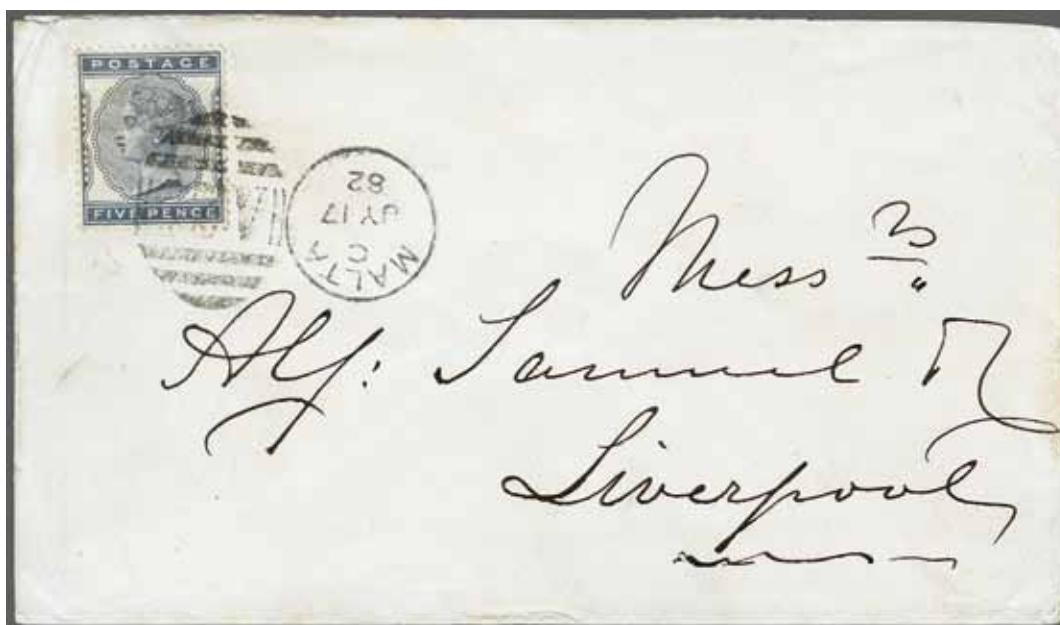 POSTAGE
FIVE PENCE
MALTA
C
JY 17
82
Messrs
Alf: Samuel
Liverpool